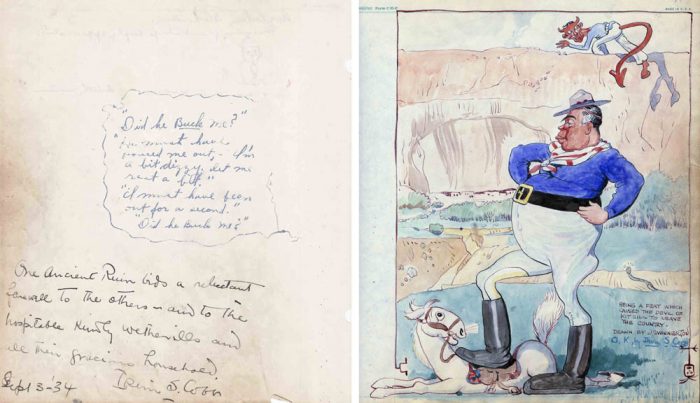 "Did he Buck me?"
must have
me out, - I'm
a bit dizzy, let me
rest a bit."
"I must have been
out for a second."
"Did he Buck me?"
One Ancient Ruin bids a reluctant
farewell to the others - and to the
hospitable kindly Wetherills and
all their gracious household.
Irvin S. Cobb
Sept 3-34
BEING A FEAT WHICH
CAUSED THE DEVIL OF
TO LEAVE
THE COUNTRY.
DRAWN BY J.
O.K. by Irvin S. Cobb